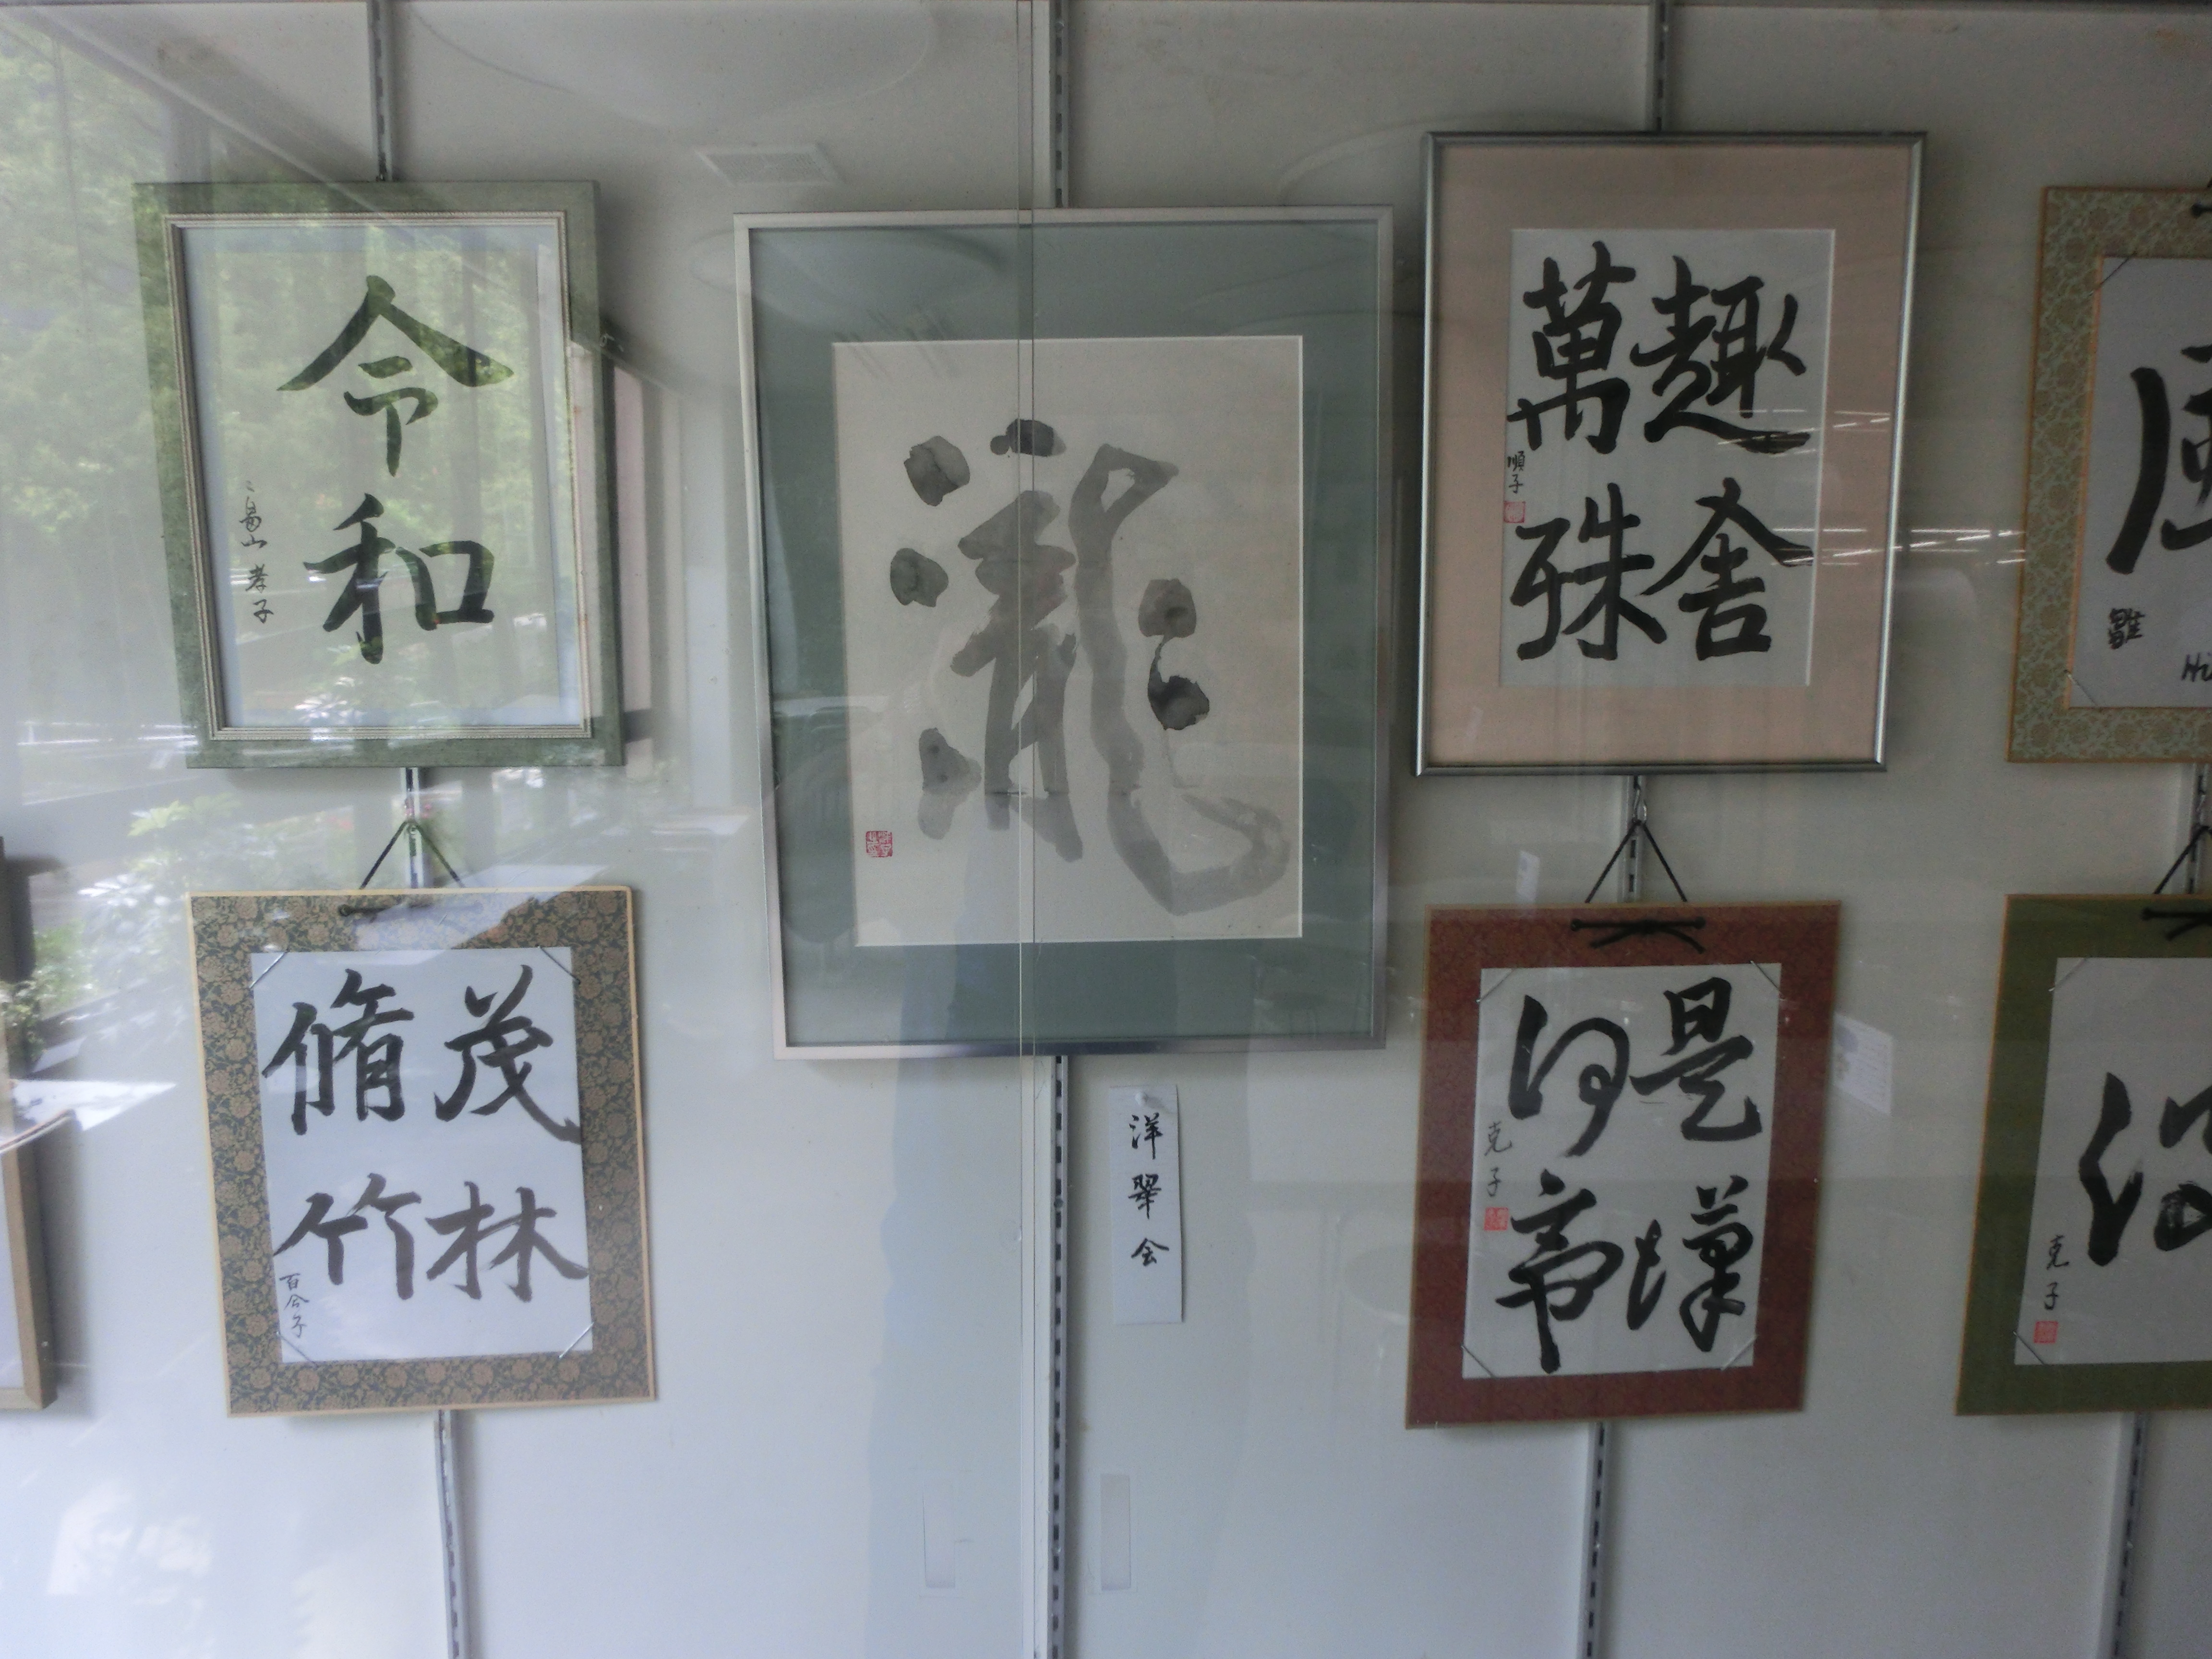 令和
畠山孝子
茂林
脩竹
百合子
瀧
洋翠会
趣舎
萬殊
順子
是
克子
風
雛
Hi
克子